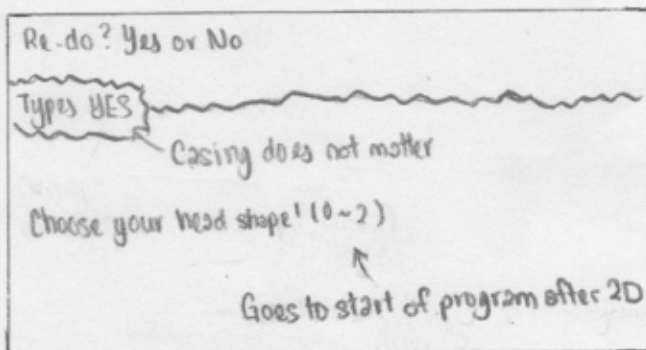 Re-do? Yes or No
Types YES
Casing does not matter
Choose your head shape! (0~2)
Goes to start of program after 2D